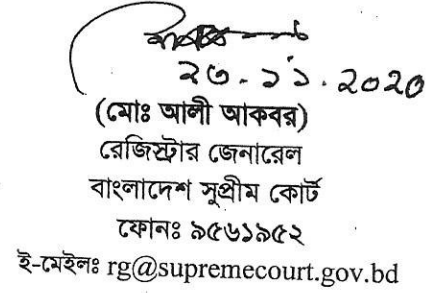 ২৩.১১.২০২০
(মোঃ আলী আকবর)
রেজিস্ট্রার জেনারেল
বাংলাদেশ সুপ্রীম কোর্ট
ফোনঃ ৯৫৬১৯৫২
ই-মেইলঃ rg@supremecourt.gov.bd